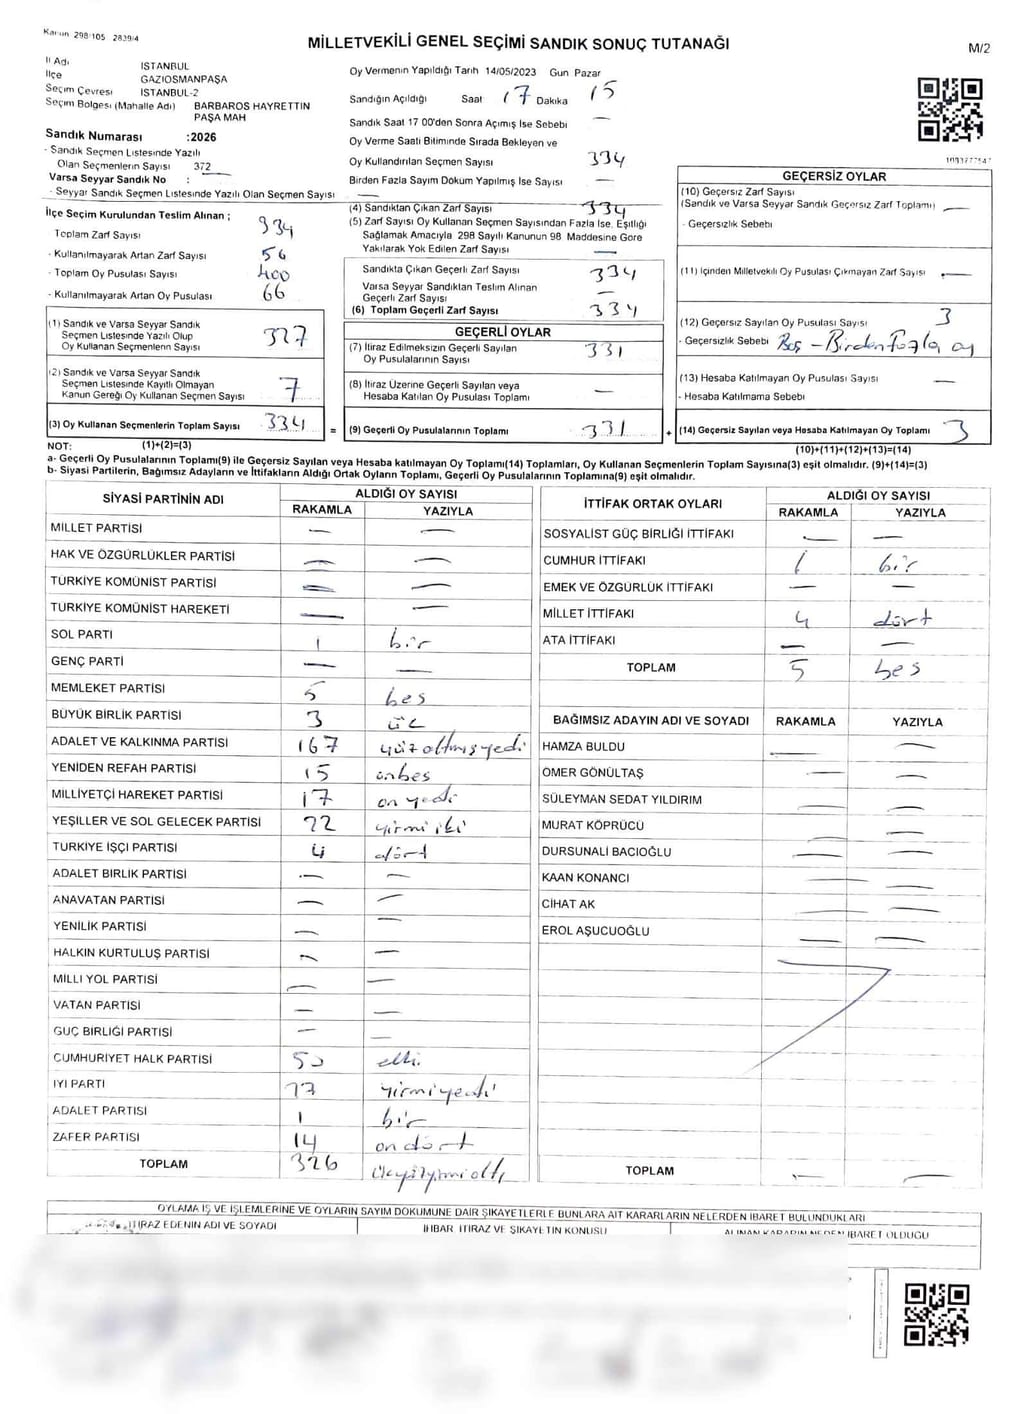 Kanun 298/105 2839/4
MİLLETVEKİLİ GENEL SEÇİMİ SANDIK SONUÇ TUTANAĞI
M/2
İl Adı İSTANBUL
İlçe GAZİOSMANPAŞA
Seçim Çevresi İSTANBUL-2
Seçim Bölgesi (Mahalle Adı) BARBAROS HAYRETTİN PAŞA MAH
Sandık Numarası :2026
- Sandık Seçmen Listesinde Yazılı
Olan Seçmenlerin Sayısı 372
Varsa Seyyar Sandık No :
- Seyyar Sandık Seçmen Listesinde Yazılı Olan Seçmen Sayısı —
İlçe Seçim Kurulundan Teslim Alınan ;
Toplam Zarf Sayısı 934
- Kullanılmayarak Artan Zarf Sayısı 56
- Toplam Oy Pusulası Sayısı 400
- Kullanılmayarak Artan Oy Pusulası 66
(1) Sandık ve Varsa Seyyar Sandık
Seçmen Listesinde Yazılı Olup
Oy Kullanan Seçmenlerin Sayısı 327
(2) Sandık ve Varsa Seyyar Sandık
Seçmen Listesinde Kayıtlı Olmayan
Kanun Gereği Oy Kullanan Seçmen Sayısı 7
(3) Oy Kullanan Seçmenlerin Toplam Sayısı 334 =
Oy Vermenin Yapıldığı Tarih 14/05/2023 Gün Pazar
Sandığın Açıldığı Saat 17 Dakika 15
Sandık Saat 17 00'den Sonra Açımış İse Sebebi —
Oy Verme Saati Bitiminde Sırada Bekleyen ve
Oy Kullandırılan Seçmen Sayısı 334
Birden Fazla Sayım Döküm Yapılmış İse Sayısı —
(4) Sandıktan Çıkan Zarf Sayısı 334
(5) Zarf Sayısı Oy Kullanan Seçmen Sayısından Fazla İse, Eşitliği
Sağlamak Amacıyla 298 Sayılı Kanunun 98 Maddesine Göre
Yakılarak Yok Edilen Zarf Sayısı —
Sandıkta Çıkan Geçerli Zarf Sayısı 334
Varsa Seyyar Sandıktan Teslim Alınan
Geçerli Zarf Sayısı —
(6) Toplam Geçerli Zarf Sayısı 334
GEÇERLİ OYLAR
(7) İtiraz Edilmeksizin Geçerli Sayılan
Oy Pusulalarının Sayısı 331
(8) İtiraz Üzerine Geçerli Sayılan veya
Hesaba Katılan Oy Pusulası Toplamı —
(9) Geçerli Oy Pusulalarının Toplamı 331 +
GEÇERSİZ OYLAR
(10) Geçersiz Zarf Sayısı
(Sandık ve Varsa Seyyar Sandık Geçersiz Zarf Toplamı) —
- Geçersizlik Sebebi
(11) İçinden Milletvekili Oy Pusulası Çıkmayan Zarf Sayısı —
(12) Geçersiz Sayılan Oy Pusulası Sayısı 3
- Geçersizlik Sebebi Boş - Birden Fazla oy
(13) Hesaba Katılmayan Oy Pusulası Sayısı —
- Hesaba Katılmama Sebebi
(14) Geçersiz Sayılan veya Hesaba Katılmayan Oy Toplamı 3
NOT: (1)+(2)=(3) (10)+(11)+(12)+(13)=(14)
a- Geçerli Oy Pusulalarının Toplamı(9) ile Geçersiz Sayılan veya Hesaba katılmayan Oy Toplamı(14) Toplamları, Oy Kullanan Seçmenlerin Toplam Sayısına(3) eşit olmalıdır. (9)+(14)=(3)
b- Siyasi Partilerin, Bağımsız Adayların ve İttifakların Aldığı Ortak Oyların Toplamı, Geçerli Oy Pusulalarının Toplamına(9) eşit olmalıdır.
SİYASİ PARTİNİN ADI ALDIĞI OY SAYISI
RAKAMLA YAZIYLA
MİLLET PARTİSİ — —
HAK VE ÖZGÜRLÜKLER PARTİSİ — —
TÜRKİYE KOMÜNİST PARTİSİ — —
TÜRKİYE KOMÜNİST HAREKETİ — —
SOL PARTİ 1 bir
GENÇ PARTİ — —
MEMLEKET PARTİSİ 5 beş
BÜYÜK BİRLİK PARTİSİ 3 üç
ADALET VE KALKINMA PARTİSİ 167 yüzaltmışyedi
YENİDEN REFAH PARTİSİ 15 onbeş
MİLLİYETÇİ HAREKET PARTİSİ 17 on yedi
YEŞİLLER VE SOL GELECEK PARTİSİ 22 yirmi iki
TÜRKİYE İŞÇİ PARTİSİ 4 dört
ADALET BİRLİK PARTİSİ — —
ANAVATAN PARTİSİ — —
YENİLİK PARTİSİ — —
HALKIN KURTULUŞ PARTİSİ — —
MİLLİ YOL PARTİSİ — —
VATAN PARTİSİ — —
GÜÇ BİRLİĞİ PARTİSİ — —
CUMHURİYET HALK PARTİSİ 50 elli
İYİ PARTİ 27 yirmiyedi
ADALET PARTİSİ 1 bir
ZAFER PARTİSİ 14 on dört
TOPLAM 326 üçyüzyirmialtı
İTTİFAK ORTAK OYLARI ALDIĞI OY SAYISI
RAKAMLA YAZIYLA
SOSYALİST GÜÇ BİRLİĞİ İTTİFAKI — —
CUMHUR İTTİFAKI 1 bir
EMEK VE ÖZGÜRLÜK İTTİFAKI — —
MİLLET İTTİFAKI 4 dört
ATA İTTİFAKI — —
TOPLAM 5 beş
BAĞIMSIZ ADAYIN ADI VE SOYADI RAKAMLA YAZIYLA
HAMZA BULDU — —
ÖMER GÖNÜLTAŞ — —
SÜLEYMAN SEDAT YILDIRIM — —
MURAT KÖPRÜCÜ — —
DURSUNALİ BACIOĞLU — —
KAAN KONANCI — —
CİHAT AK — —
EROL AŞUCUOĞLU — —
TOPLAM — —
OYLAMA İŞ VE İŞLEMLERİNE VE OYLARIN SAYIM DÖKÜMÜNE DAİR ŞİKAYETLERLE BUNLARA AİT KARARLARIN NELERDEN İBARET BULUNDUKLARI
İTİRAZ EDENİN ADI VE SOYADI
İHBAR İTİRAZ VE ŞİKAYETİN KONUSU
ALINAN KARARIN NEDEN İBARET OLDUĞU